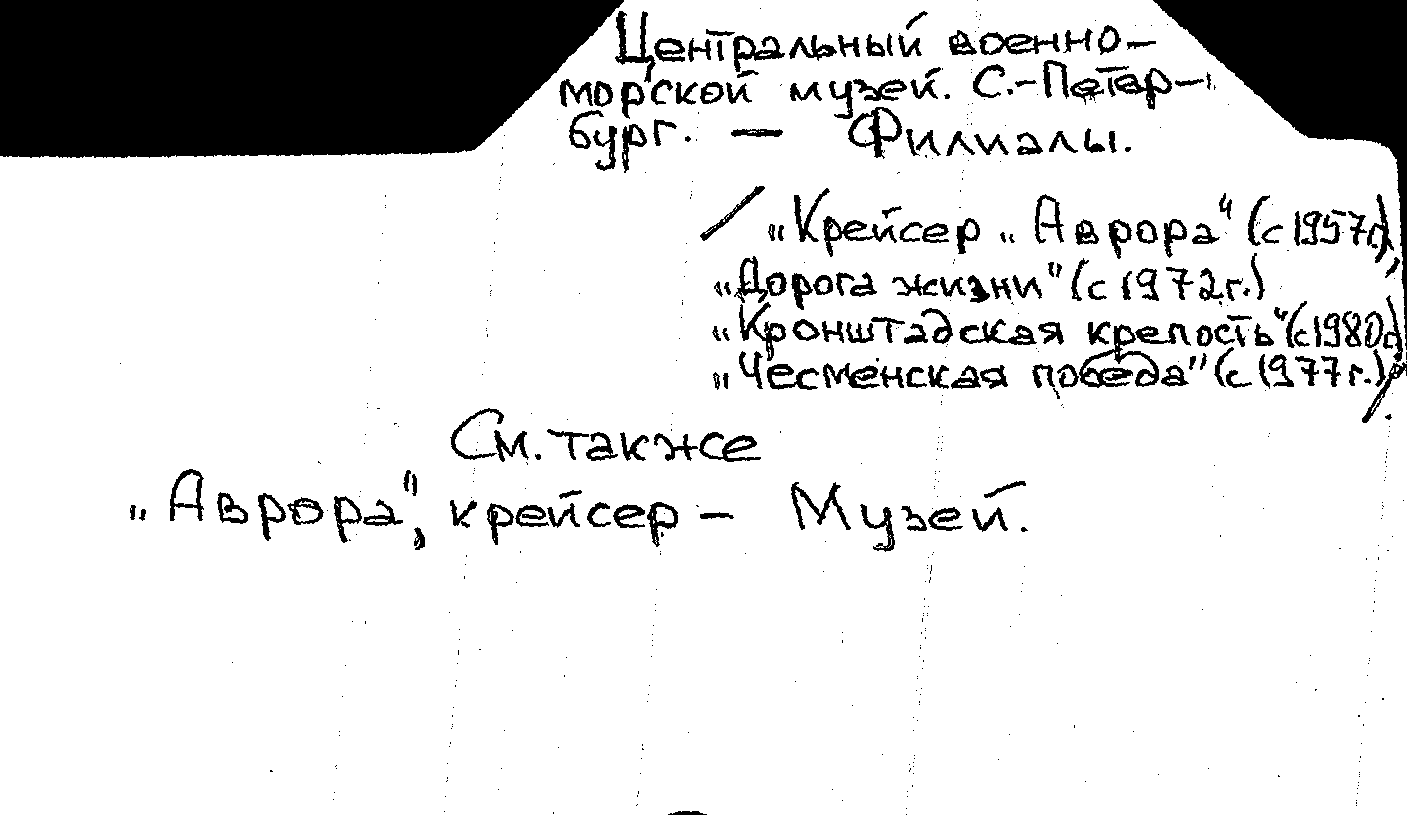 Центральный военно-
морской музей. С.-Петер-
бург. — Филиалы.
/ „Крейсер „Аврора" (с 1957г.),
„Дорога жизни" (с 1972г.)
„Кронштадская крепость" (с 1980г.)
„Чесменская победа" (с 1977г.)/.
См. также
„Аврора", крейсер – Музей.